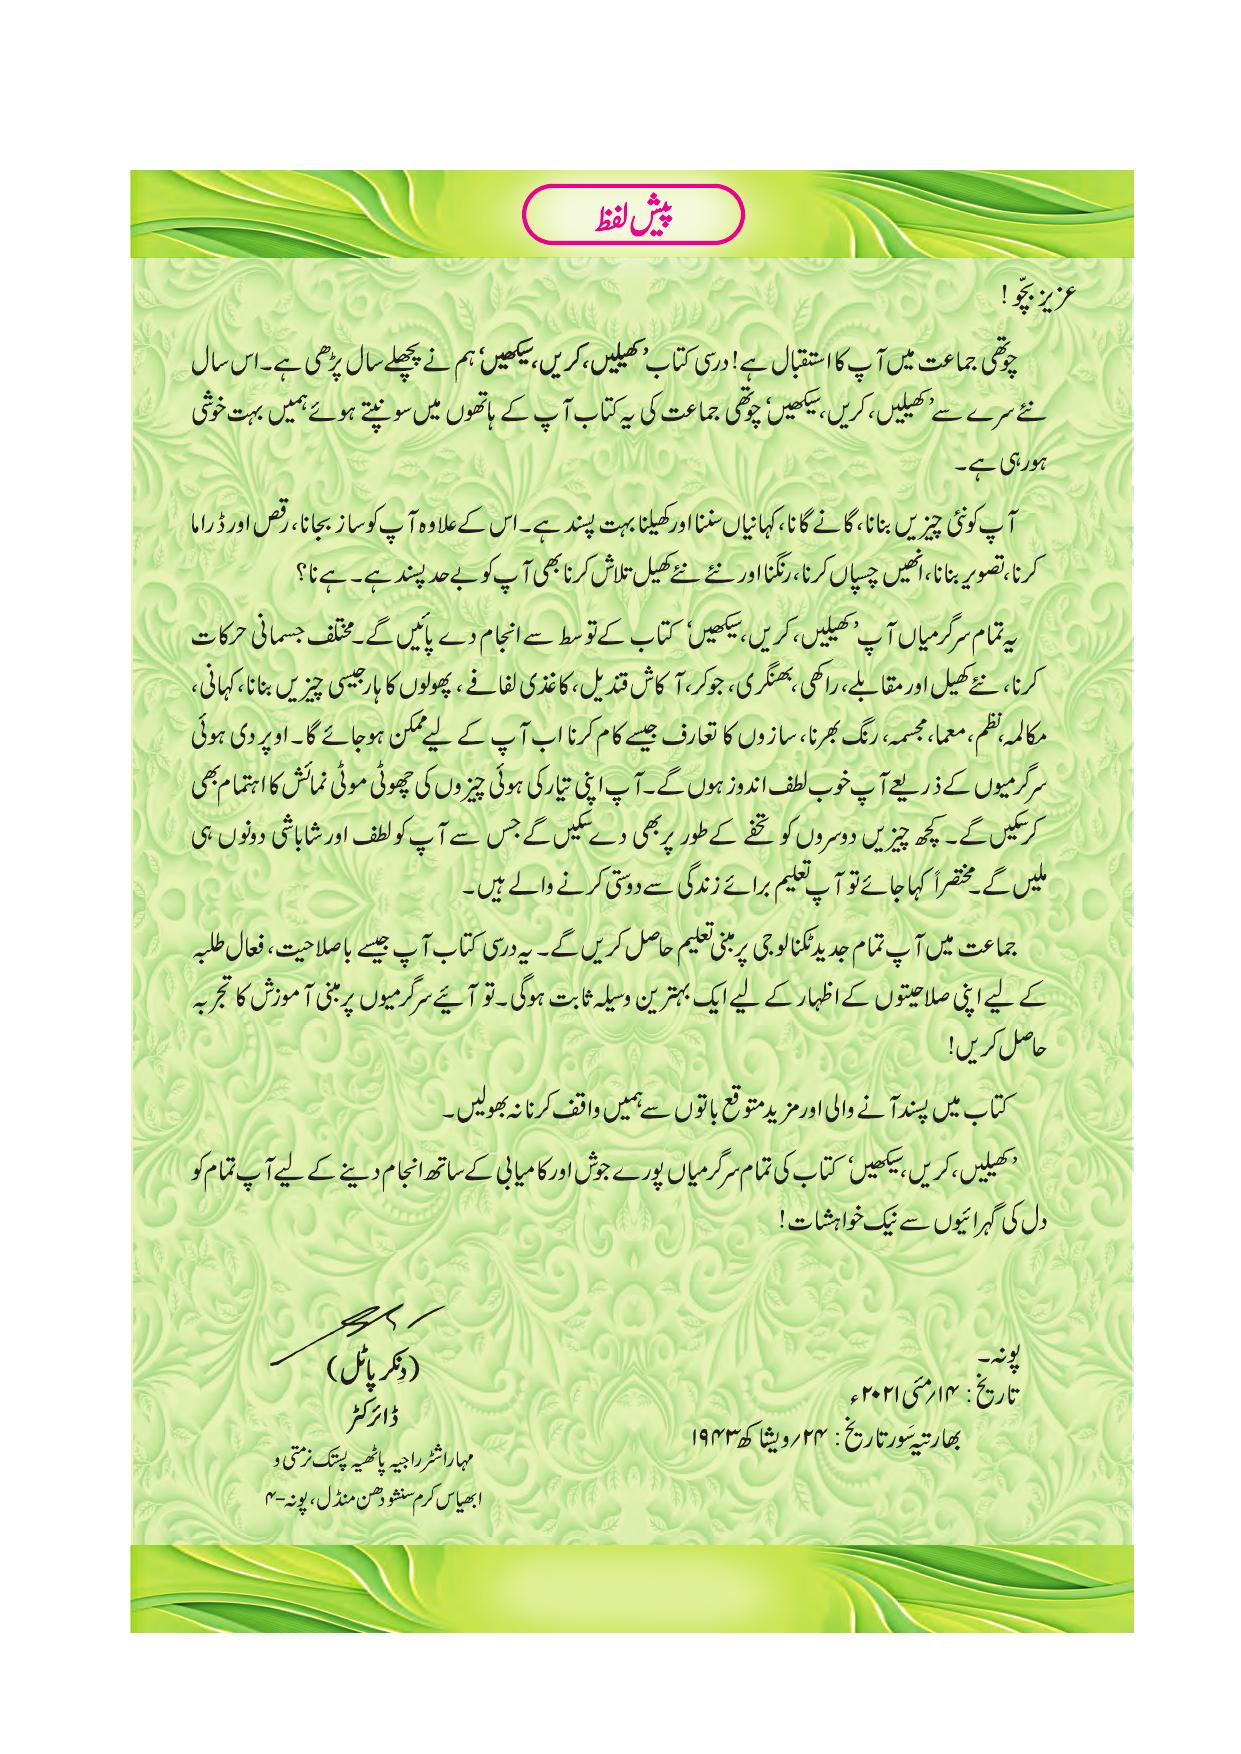 پیش لفظ
عزیز بچّو !
چوتھی جماعت میں آپ کا استقبال ہے! درسی کتاب ’کھیلیں، کریں، سیکھیں‘ ہم نے پچھلے سال پڑھی ہے۔ اس سال
نئے سرے سے ’کھیلیں، کریں، سیکھیں‘ چوتھی جماعت کی یہ کتاب آپ کے ہاتھوں میں سونپتے ہوئے ہمیں بہت خوشی
ہورہی ہے۔
آپ کو نئی چیزیں بنانا، گانے گانا، کہانیاں سننا اور کھیلنا بہت پسند ہے۔ اس کے علاوہ آپ کو ساز بجانا، رقص اور ڈراما
کرنا، تصویر بنانا، انھیں چسپاں کرنا، رنگنا اور نئے نئے کھیل تلاش کرنا بھی آپ کو بے حد پسند ہے۔ ہے نا؟
یہ تمام سرگرمیاں آپ ’کھیلیں، کریں، سیکھیں‘ کتاب کے توسط سے انجام دے پائیں گے۔ مختلف جسمانی حرکات
کرنا، نئے کھیل اور مقابلے، راکھی، بھنگری، جوکر، آکاش قندیل، کاغذی لفافے، پھولوں کا ہار جیسی چیزیں بنانا، کہانی،
مکالمہ، نظم، معما، مجسمہ، رنگ بھرنا، سازوں کا تعارف جیسے کام کرنا اب آپ کے لیے ممکن ہوجائے گا۔ اوپر دی ہوئی
سرگرمیوں کے ذریعے آپ خوب لطف اندوز ہوں گے۔ آپ اپنی تیار کی ہوئی چیزوں کی چھوٹی موٹی نمائش کا اہتمام بھی
کرسکیں گے۔ کچھ چیزیں دوسروں کو تحفے کے طور پر بھی دے سکیں گے جس سے آپ کو لطف اور شاباشی دونوں ہی
ملیں گے۔ مختصراً کہا جائے تو آپ تعلیم برائے زندگی سے دوستی کرنے والے ہیں۔
جماعت میں آپ تمام جدید ٹکنالوجی پر مبنی تعلیم حاصل کریں گے۔ یہ درسی کتاب آپ جیسے باصلاحیت، فعال طلبہ
کے لیے اپنی صلاحیتوں کے اظہار کے لیے ایک بہترین وسیلہ ثابت ہوگی۔ تو آئیے سرگرمیوں پر مبنی آموزش کا تجربہ
حاصل کریں!
کتاب میں پسند آنے والی اور مزید متوقع باتوں سے ہمیں واقف کرنا نہ بھولیں۔
’کھیلیں، کریں، سیکھیں‘ کتاب کی تمام سرگرمیاں پورے جوش اور کامیابی کے ساتھ انجام دینے کے لیے آپ تمام کو
دل کی گہرائیوں سے نیک خواہشات!
پونہ۔
تاریخ : ۱۴؍مئی ۲۰۲۱ء
بھارتیہ سَور تاریخ : ۲۴؍ویشاکھ ۱۹۴۳
(دِنکر پاٹل)
ڈائرکٹر
مہاراشٹر راجیہ پاٹھیہ پستک نرمتی و
ابھیاس کرم سنشودھن منڈل، پونہ-۴